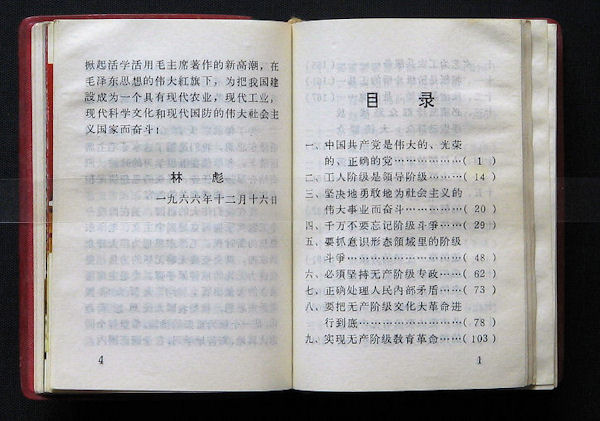 掀起活学活用毛主席著作的新高潮，在
毛泽东思想的伟大红旗下，为把我国建
设成为一个具有现代农业、现代工业、
现代科学文化和现代国防的伟大社会主
义国家而奋斗！
林 彪
一九六六年十二月十六日
4
目 录
一、中国共产党是伟大的、光荣
的、正确的党………………( 1 )
二、工人阶级是领导阶级………( 14 )
三、坚决地勇敢地为社会主义的
伟大事业而奋斗…………( 20 )
四、千万不要忘记阶级斗争……( 29 )
五、要抓意识形态领域里的阶级
斗争…………………………( 48 )
六、必须坚持无产阶级专政……( 62 )
七、正确处理人民内部矛盾……( 73 )
八、要把无产阶级文化大革命进
行到底………………………( 78 )
九、实现无产阶级教育革命……(103)
1